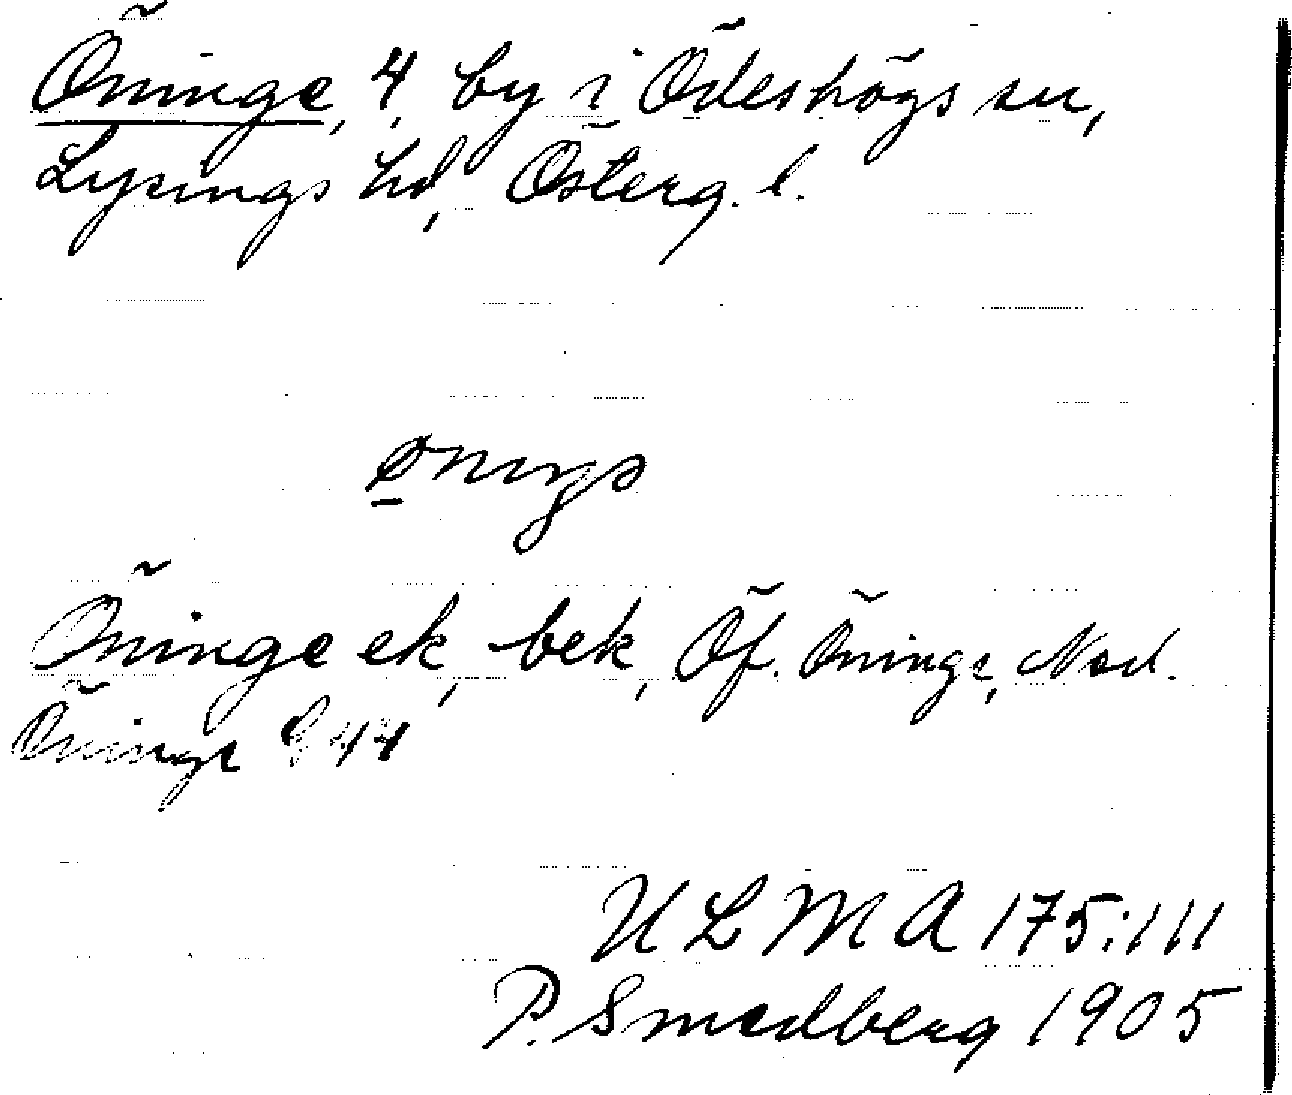 Öninge, 4, by i Ödeshögs sn,
Lysings hd, Österg. l.
Öninge ek, bek, Öf. Öninge, Ned.
Öninge G 44
ULMA 175:111
P. Smedberg 1905